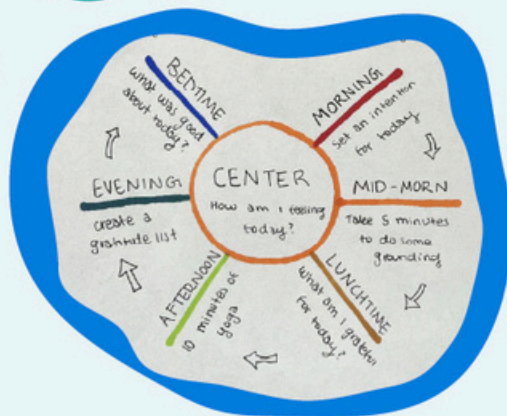 CENTER
How am I feeling
today?
MORNING
Set an intention
for today
MID-MORN
Take 5 minutes
to do some
grounding
LUNCHTIME
What am I grateful
for today?
AFTERNOON
10 minutes of
yoga
EVENING
create a
gratitute list
BEDTIME
What was good
about today?